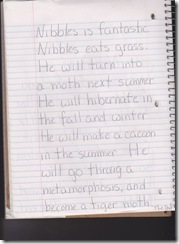 Nibbles is fantastic.
Nibbles eats grass.
He will turn into
a moth next summer.
He will hibernate in
the fall and winter.
He will make a cacoon
in the summer. He
will go throug a
metamorphosis, and
become a tiger moth.